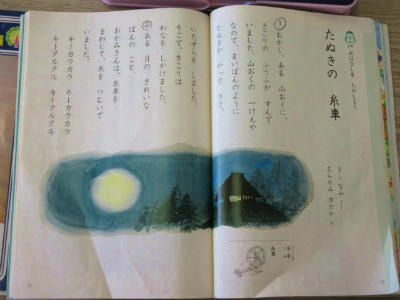 おはなしを たのしもう
たぬきの 糸車
きし なみ
むらかみ ゆたか え
① むかし、ある 山おくに、
きこりの ふうふが すんで
いました。山おくの 一けんや
なので、まいばんのように
たぬきが やって きて、
いたずらを しました。
そこで、きこりは
わなを しかけました。
② ある 月の きれいな
ばんの こと、
おかみさんは、糸車を
まわして、糸を つむいで
いました。
キーカラカラ キーカラカラ
キークルクル キークルクル
糸車